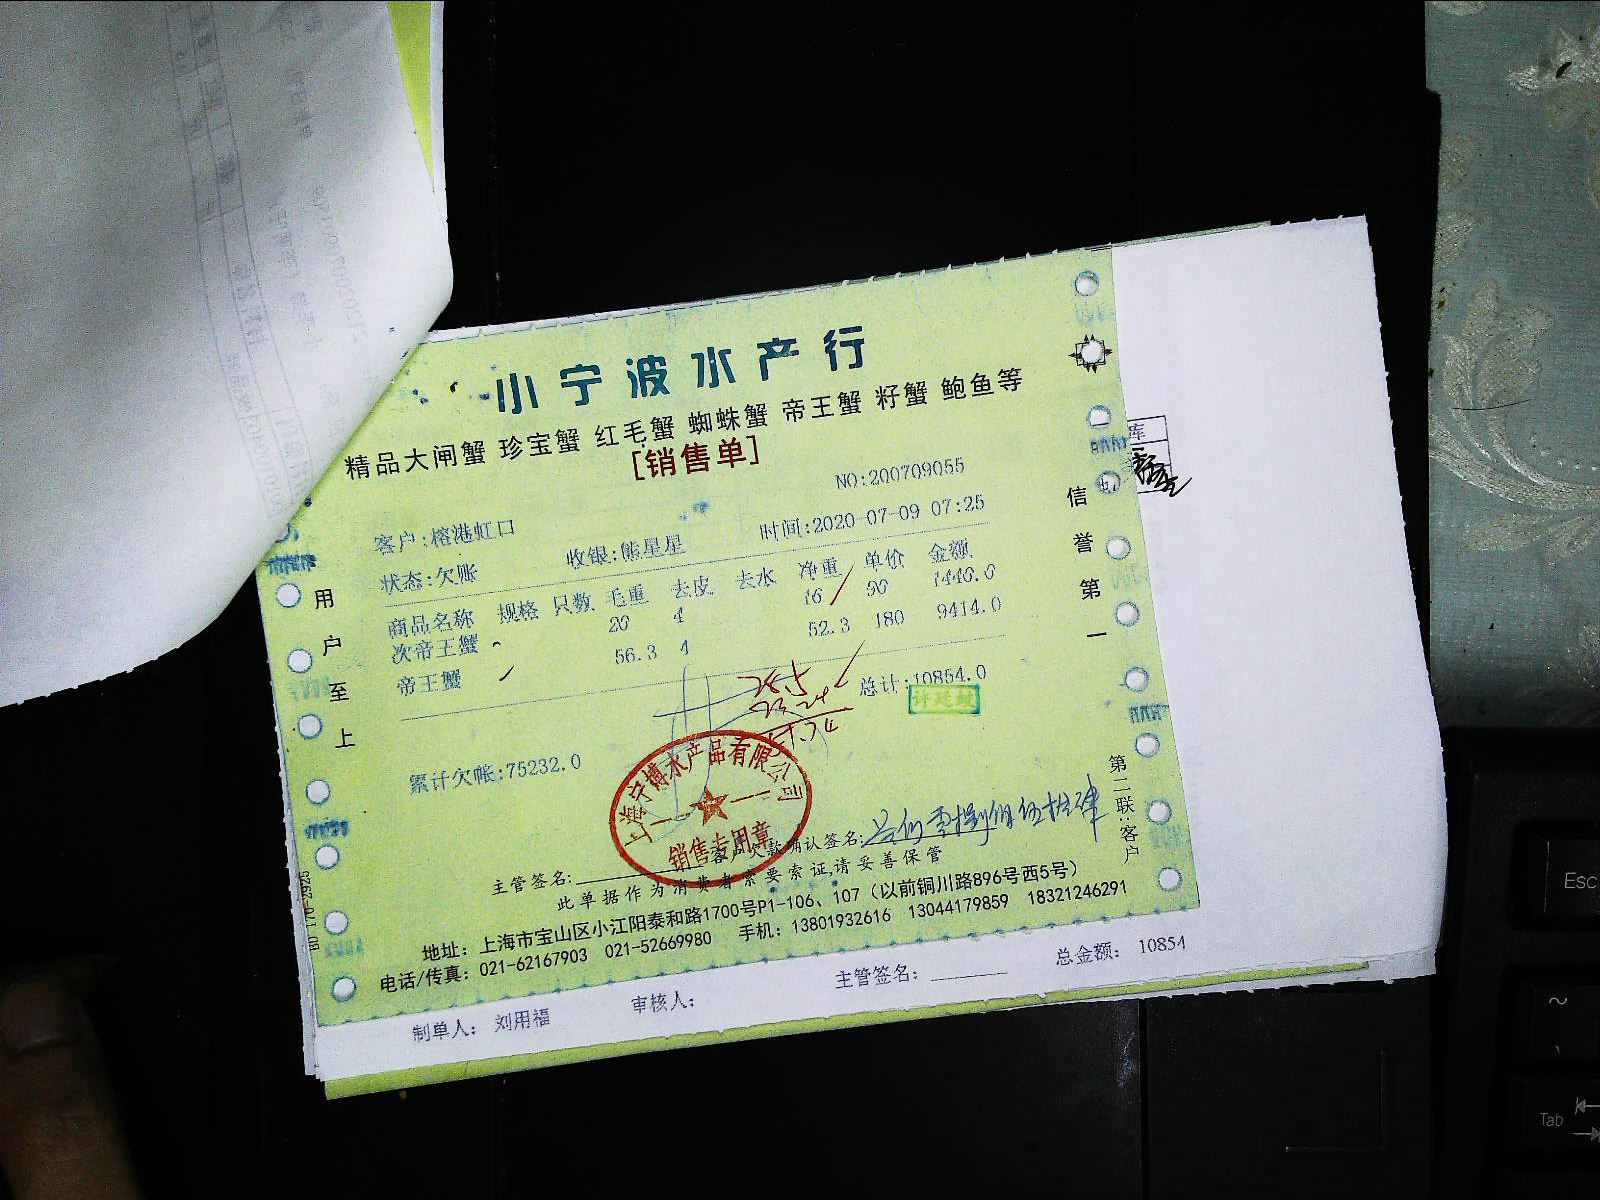 小宁波水产行
精品大闸蟹 珍宝蟹 红毛蟹 蜘蛛蟹 帝王蟹 籽蟹 鲍鱼等
[销售单]
NO:200709055
客户:榕港虹口
时间:2020-07-09 07:25
状态:欠账
收银:熊星星
商品名称 规格 只数 毛重 去皮 去水 净重 单价 金额
次帝王蟹 20 4 16 90 1440.0
帝王蟹 56.3 4 52.3 180 9414.0
总计:10854.0
累计欠帐:75232.0
上海宁博水产品有限公司
销售专用章
主管签名:
客户欠款确认签名:
此单据作为消费者索要索证,请妥善保管
地址：上海市宝山区小江阳泰和路1700号P1-106、107（以前铜川路896号西5号）
电话/传真：021-62167903 021-52669980 手机：13801932616 13044179859 18321246291
用户至上
信誉第一
第二联:客户
库
制单人： 刘用福
审核人：
主管签名：
总金额： 10854
Esc
~
Tab